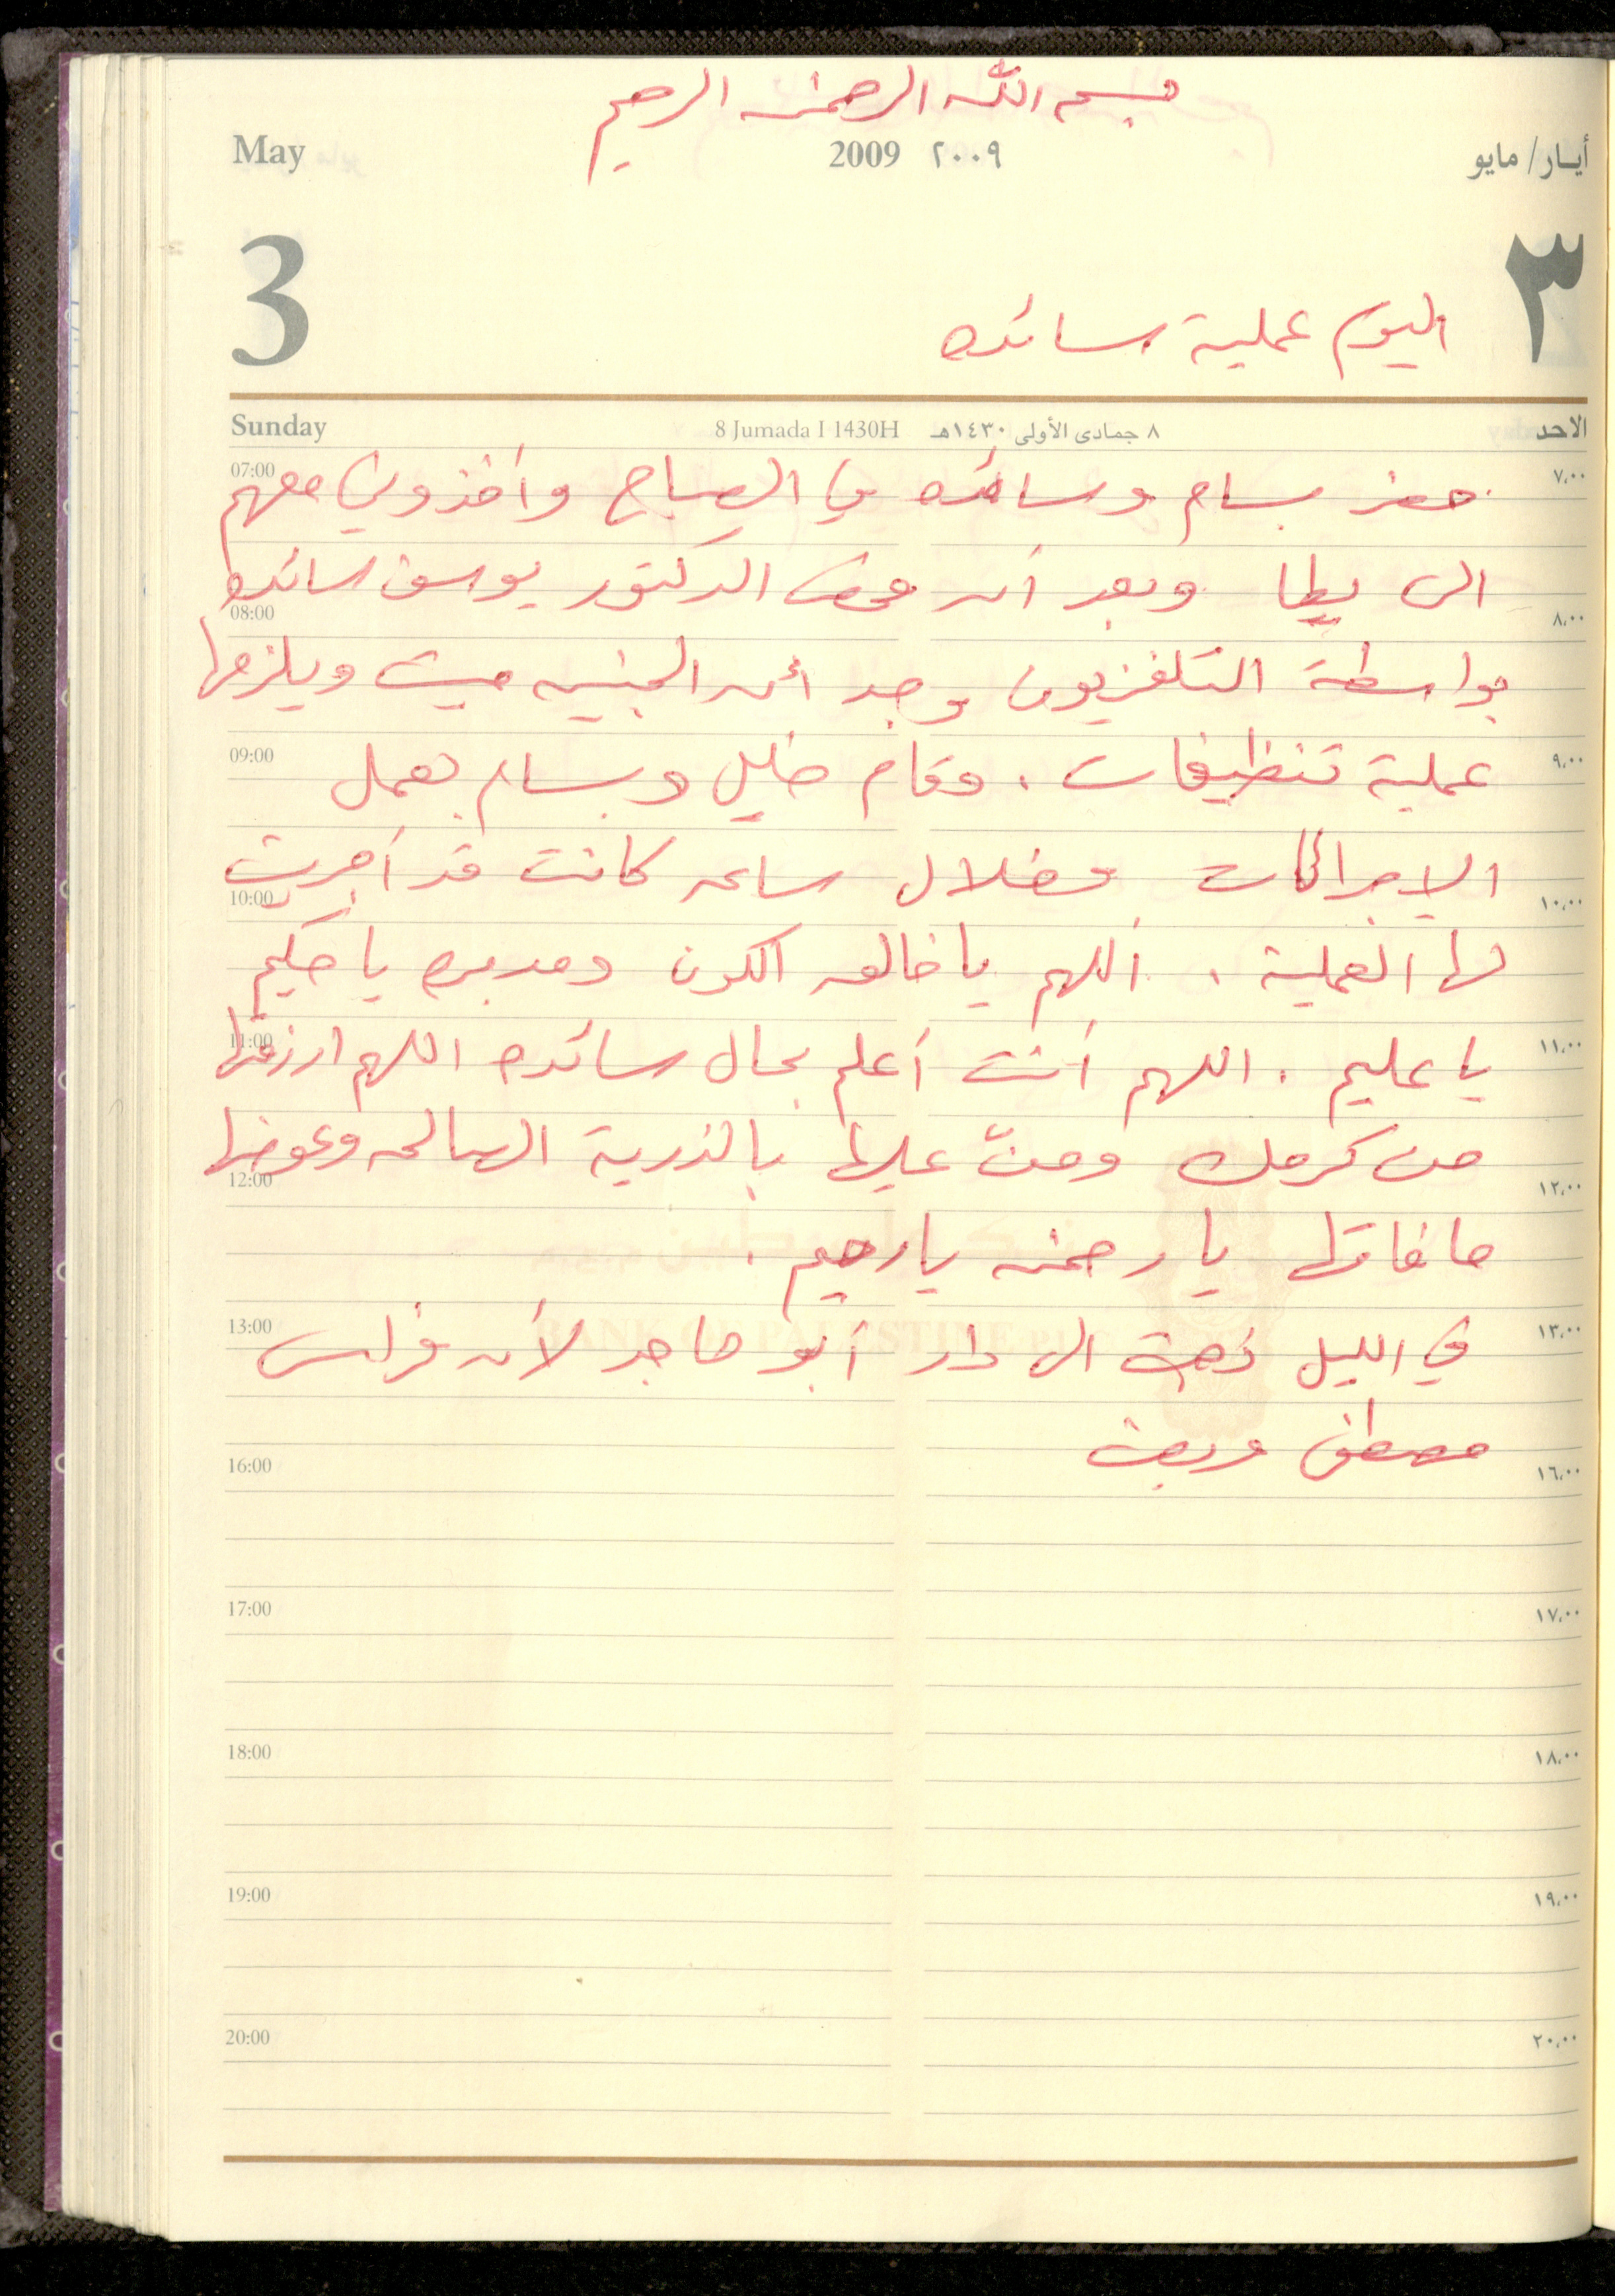 بسم الله الرحمن الرحيم
May 2009 ٢٠٠٩ أيـار/ مايو
3 ٣
اليوم عملية سائده
Sunday 8 Jumada I 1430H ٨ جمادى الأولى ١٤٣٠هـ الاحد
07:00 حضر بسام وسائده في الصباح وأخذوني معهم ٧,٠٠
الى يطا وبعد أن فحص الدكتور يوسف سائده
08:00 ٨,٠٠
بواسطة التلفزيون وجد أن الجنين ميت ويلزمها
09:00 عملية تنظيفات . وقام خليل وبسام بعمل ٩,٠٠
الاجراءات وخلال ساعه كانت قد أجريت
10:00 ١٠,٠٠
لها العملية . اللهم يا خالق الكون ومدبره يا حكيم
11:00 يا عليم . اللهم أنت أعلم بحال سائده اللهم ارزقها ١١,٠٠
من كرمك ومنّ عليها بالذرية الصالحه وعوضها
12:00 ١٢,٠٠
ما فاتها يا رحمن يا رحيم .
13:00 في الليل ذهبت الى دار أبو ماجد لأن فراس ١٣,٠٠
BANK OF PALESTINE
مصطفى
16:00 ١٦,٠٠
17:00 ١٧,٠٠
18:00 ١٨,٠٠
19:00 ١٩,٠٠
20:00 ٢٠,٠٠